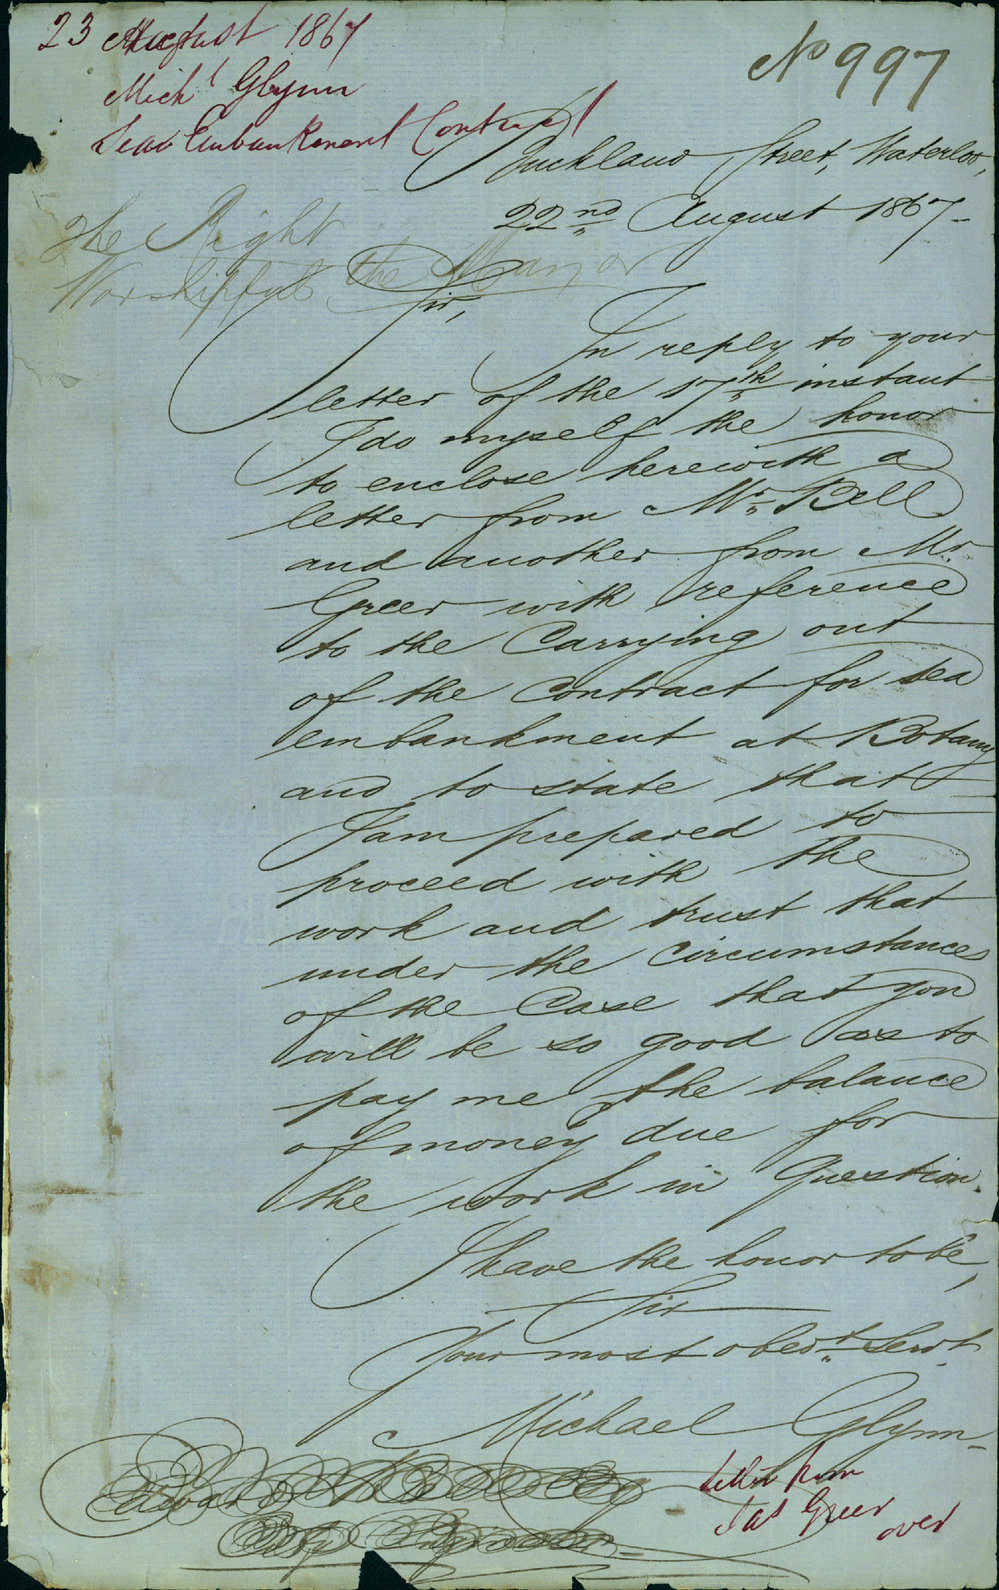 23 August 1867
Mich^l Glynn
Sea Embankment Contract
No 997
Buckland Street, Waterloo,
22nd August 1867-
The Right
Worshipful the Mayor
Sir,
In reply to your
letter of the 17th instant
I do myself the honor
to enclose herewith a
letter from Mr. Bell
and another from Mr
Greer with reference
to the Carrying out
of the Contract for sea
embankment at Botany
and to state that
I am prepared to
proceed with the
work and trust that
under the Circumstances
of the Case that you
will be so good as to
pay me the balance
of money due for
the work in Question.
I have the honor to be,
Sir
Your most obedt. Servt.
Michael Glynn-
Edward Bell Esq
City Engineer-
Letter from
Jas Greer
over